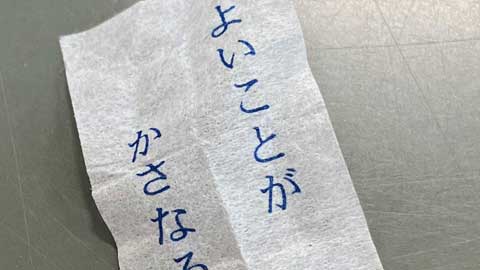 よいことが
かさなる